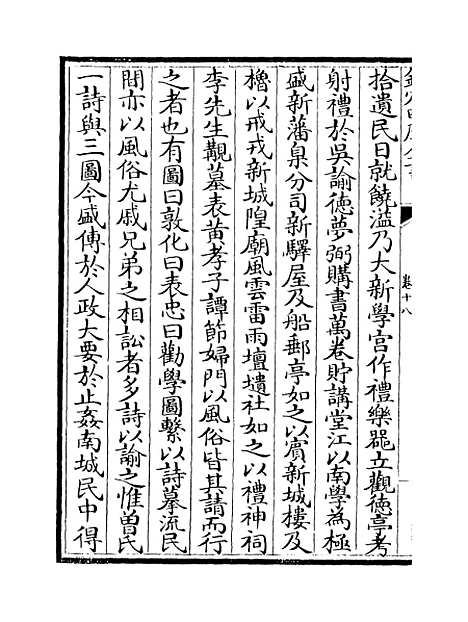 欽定四庫全書
卷十八
拾遺民日就饒溢乃大新學宮作禮樂器立觀德亭考
射禮於吳諭德夢弼購書萬卷貯講堂江以南學為極
盛新藩臬分司新驛屋及船郵亭如之以賔新城樓及
櫓以戒戎新城隍廟風雲雷雨壇壝社如之以禮神祠
李先生覯墓表黄孝子譚節婦門以風俗皆其請而行
之者也有圖曰敦化曰表忠曰勸學圖繫以詩摹流民
間亦以風俗尤戚兄弟之相訟者多詩以諭之惟曽民
一詩與三圖今盛傳於人政大要於止姦南城民中得